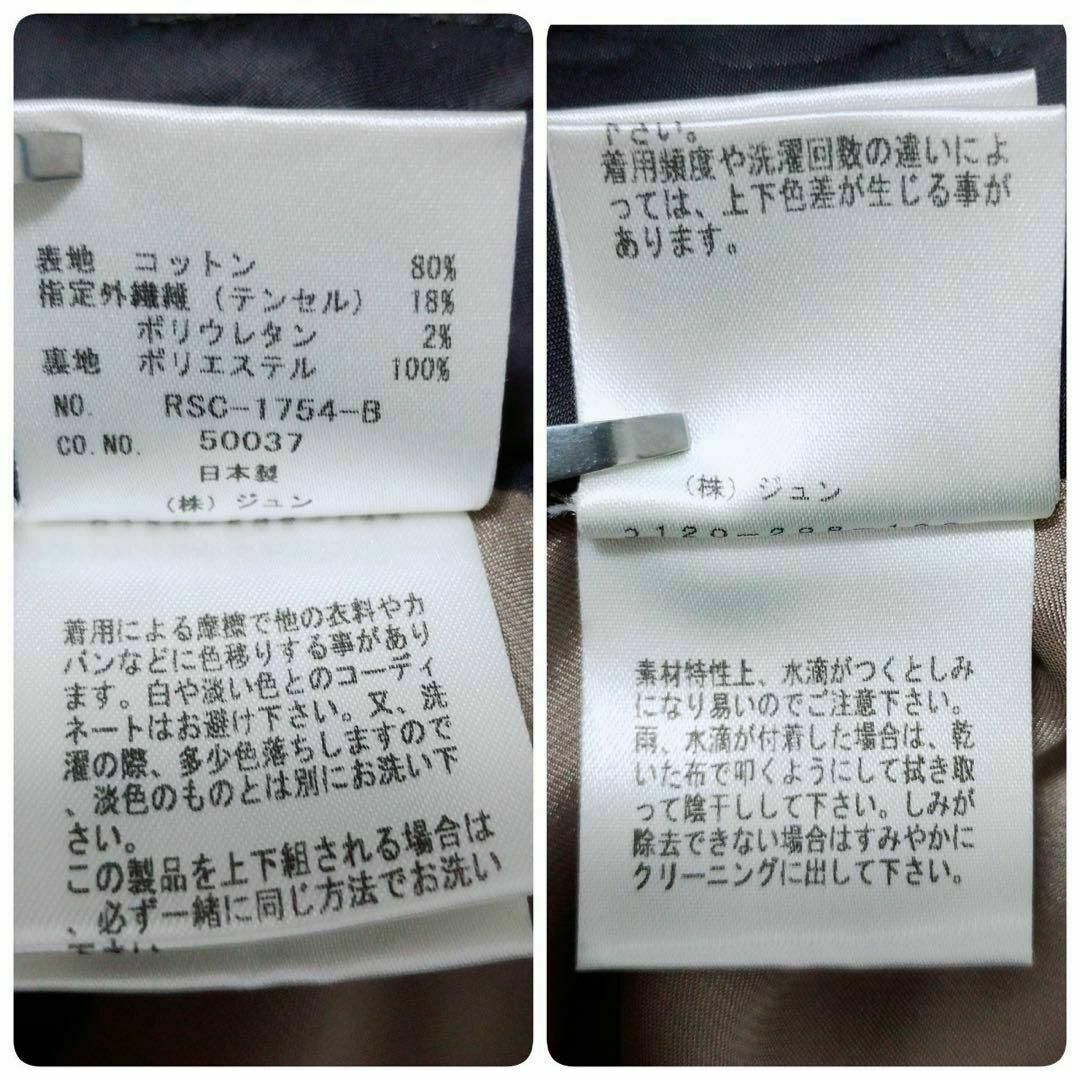 表地 コットン 80%
指定外繊維 (テンセル) 18%
ポリウレタン 2%
裏地 ポリエステル 100%
NO. RSC-1754-B
CO.NO. 50037
日本製
(株) ジュン
着用による摩擦で他の衣料やカ
バンなどに色移りする事があり
ます。白や淡い色とのコーディ
ネートはお避け下さい。又、洗
濯の際、多少色落ちしますので
、淡色のものとは別にお洗い下
さい。
この製品を上下組される場合は
、必ず一緒に同じ方法でお洗い
下さい
下さい。
着用頻度や洗濯回数の違いによ
っては、上下色差が生じる事が
あります。
(株) ジュン
素材特性上、水滴がつくとしみ
になり易いのでご注意下さい。
雨、水滴が付着した場合は、乾
いた布で叩くようにして拭き取
って陰干しして下さい。しみが
除去できない場合はすみやかに
クリーニングに出して下さい。